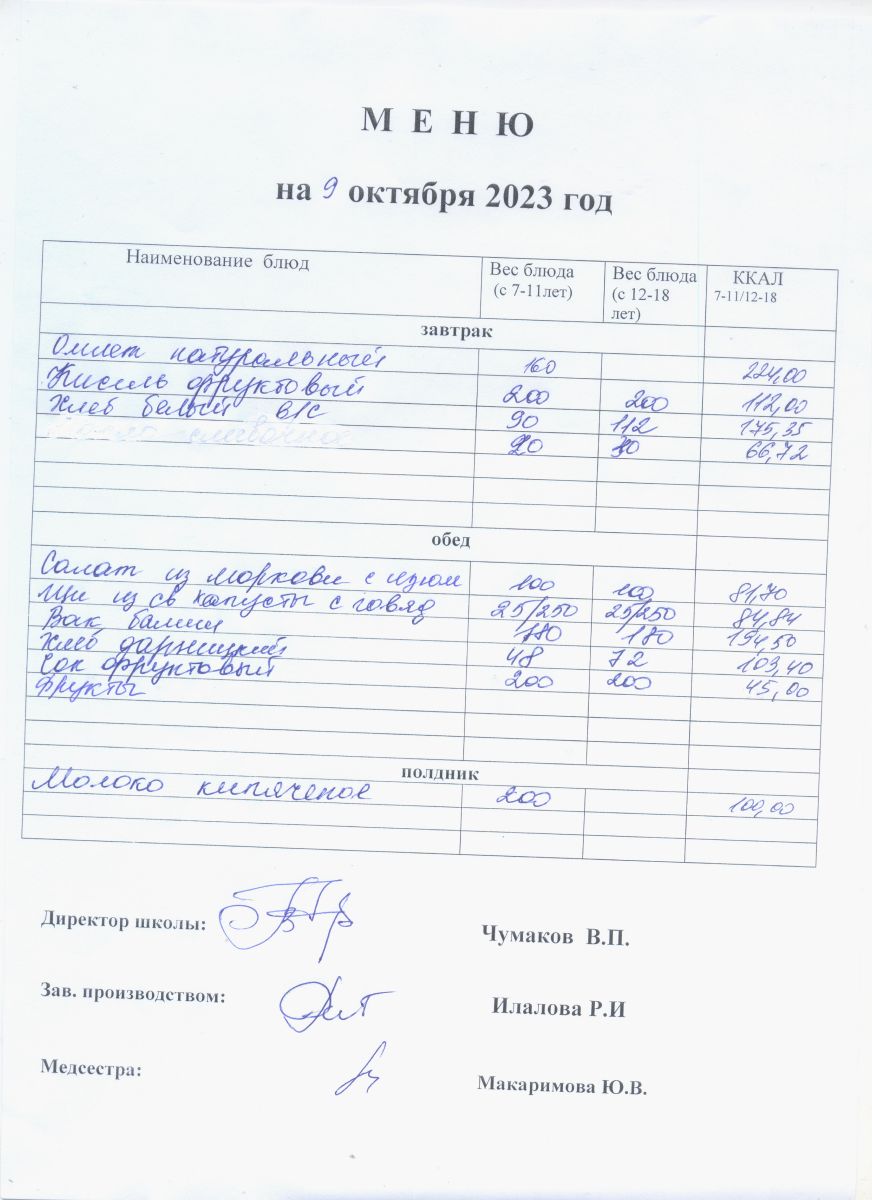 М Е Н Ю
на 9 октября 2023 год
Наименование блюд Вес блюда (с 7-11лет) Вес блюда (с 12-18 лет) ККАЛ 7-11/12-18
завтрак
Омлет натуральный 160 224,00
Кисель фруктовый 200 200 112,00
Хлеб белый в/с 90 112 175,35
сливочное 20 66,72
обед
Салат из моркови с изюм 100 100 81,70
Щи из св капусты с говяд 25/250 25/250 84,84
180 180 194,50
Хлеб дарницкий 48 72 103,40
Сок фруктовый 200 200 45,00
Фрукты
полдник
Молоко кипяченое 200 100,00
Директор школы: Чумаков В.П.
Зав. производством: Илалова Р.И
Медсестра: Макаримова Ю.В.